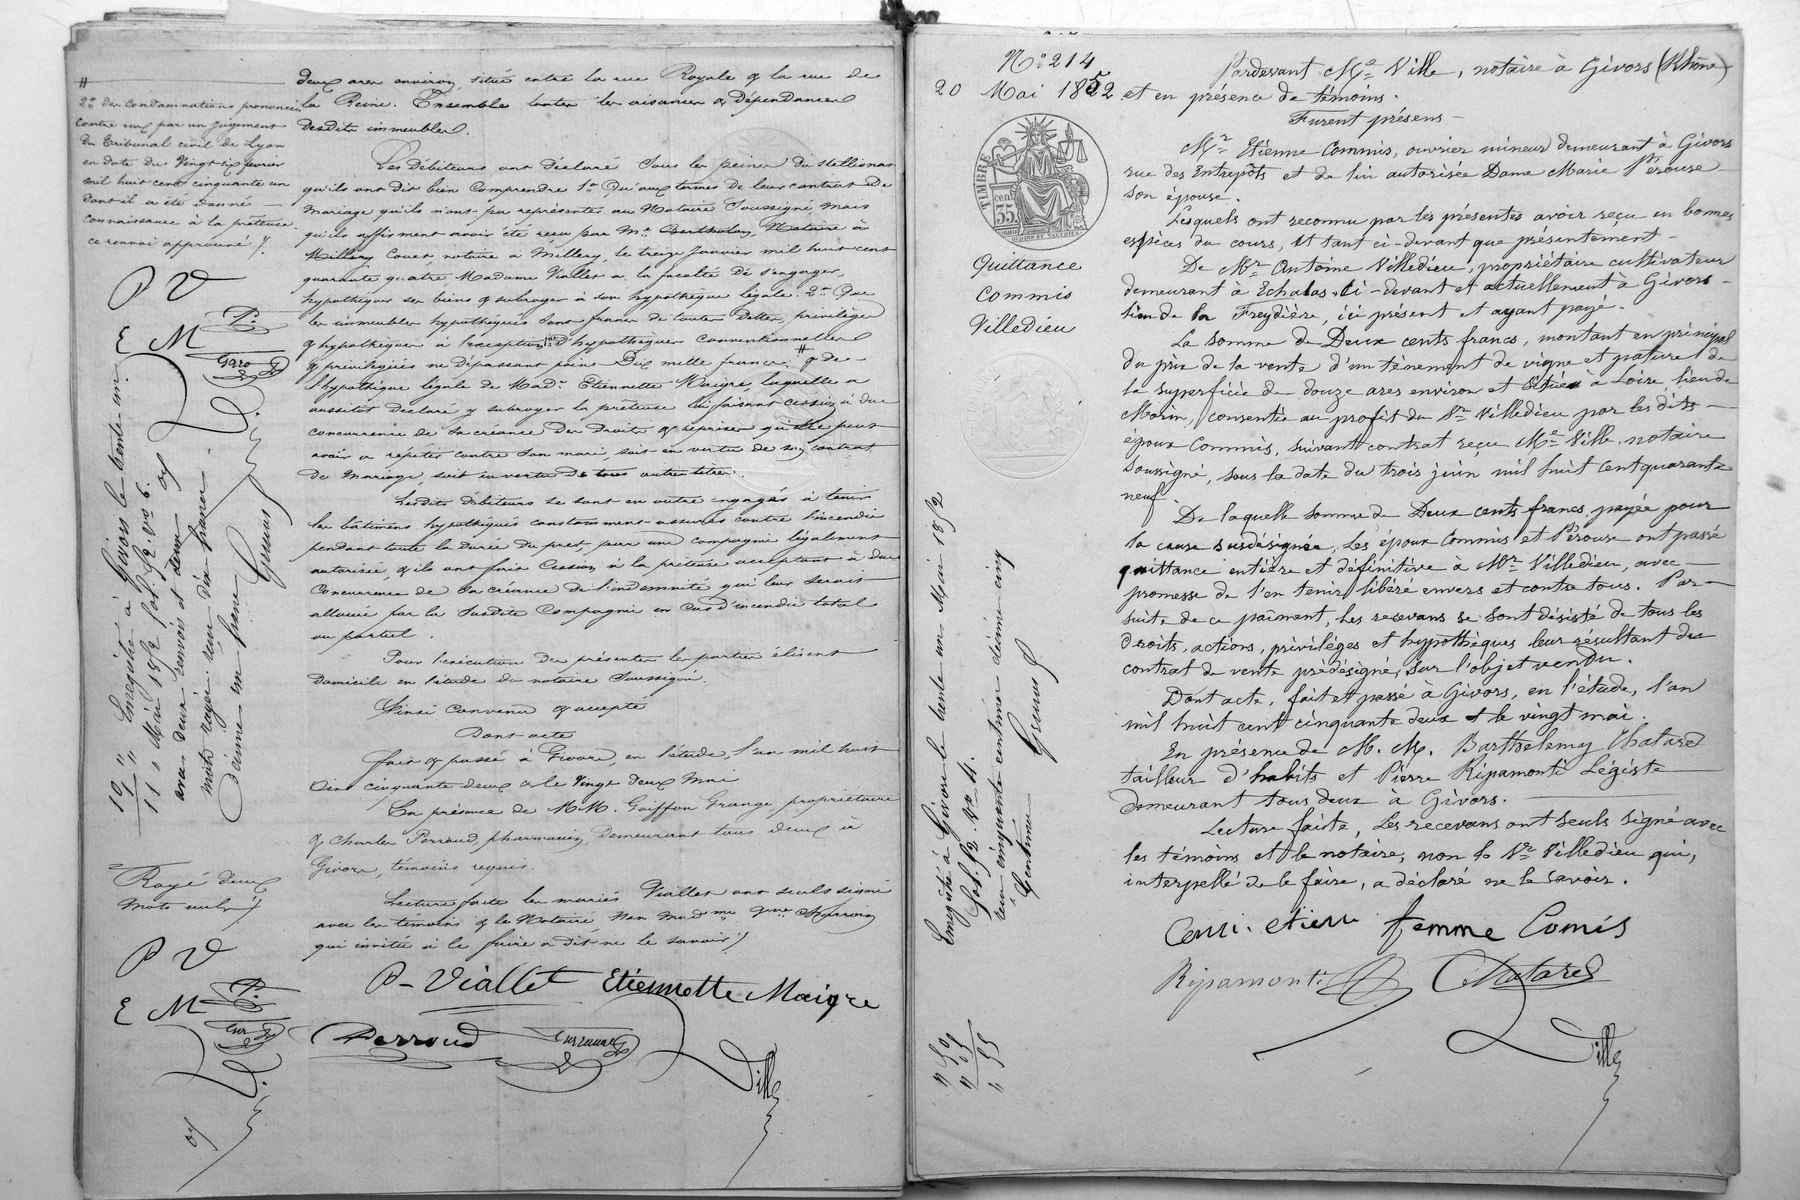 deux ares environ, située entre la rue Royale & la rue de
la Reine. Ensemble toutes les aisances & dépendances
desdits immeubles.
Les Débiteurs ont déclaré sous les peines du stellionat
qu'ils ont dit bien comprendre 1.° Qu'aux termes de leur contrat de
mariage qu'ils n'ont pu représenter au Notaire soussigné, mais
qu'ils affirment avoir été reçu par M.e Notaire à
Millery, notaire à Millery, le treize Janvier mil huit cent
quarante quatre Madame Viallet a la faculté de s'engager,
hypothéquer ses biens & subroger à son hypothèque légale. 2.° Que
les immeubles hypothéqués sont francs de toutes dettes, privilèges
& hypothèques à l'exception d'hypothèques conventionnelles
& privilégiées ne dépassant point Dix mille francs # & de
l'hypothèque légale de Mad.e Etiennette Maigre, laquelle a
aussitôt déclaré y subroger la prêteuse lui faisant cession à due
concurrence de sa créance des droits & reprises qu'elle peut
avoir à répéter contre son mari, soit en vertu de son contrat
de mariage, soit en vertu de tous autres titres.
Lesdits débiteurs se sont en outre engagés à tenir
les bâtimens hypothéqués constamment assurés contre l'incendie
pendant toute la durée du prêt, par une compagnie légalement
autorisée, & ils ont fait cession à la prêteuse acceptant à due
concurrence de sa créance de l'indemnité qui leur serait
allouée par la susdite compagnie en cas d'incendie total
ou partiel.
Pour l'exécution des présentes les parties élisent
domicile en l'étude du notaire soussigné.
Ainsi convenu & accepté
Dont acte
fait & passé à Givors, en l'étude, l'an mil huit
cent cinquante deux & le vingt deux Mai
En présence de M.M. Goiffon Grange, propriétaire
& Charles Perroud, pharmacien, demeurant tous deux à
Givors, témoins requis.
Lecture faite les mariés Viallet ont seuls signé
avec les témoins & le Notaire non mad.me
qui invitée à le faire a dit ne le savoir
P. Viallet Etiennette Maigre
Perroud
Ville
#
2.° des condamnations prononcées
contre eux par un jugement
du Tribunal civil de Lyon
en date du vingt six février
mil huit cent cinquante un
dont il a été donné
connaissance à la prêteuse
ce renvoi approuvé
P V
E M
Enregistré à Givors le trente un
Mai 1852 fol. 52 v.o c. 6.
avec deux renvois et deux
mots rayés. reçu dix francs
Décime un franc
10 "
1 "
11 "
Rayé deux
mots nuls
P V
E M
N.° 214
20 Mai 1852
TIMBRE
35
Quittance
Commis
Villedieu
Enregistré à Givors le trente un Mai 1852
fol. 52. v.o c. 4.
reçu cinquante centimes décime cinq
Centimes
" 50
" 05
" 55
Pardevant M.e Ville, notaire à Givors (Rhône)
et en présence de témoins.
Furent présens
M.r Etienne Commis, ouvrier mineur demeurant à Givors
rue des Entrepôts et de lui autorisée Dame Marie Pérouse
son épouse.
Lesquels ont reconnu par les présentes avoir reçu en bonnes
espèces du cours, et tant ci-devant que présentement
De M.r Antoine Villedieu, propriétaire cultivateur
demeurant à Echalas ci-devant et actuellement à Givors
lieu de la Freydière, ici présent et ayant payé.
La somme de Deux cents francs, montant en principal
du prix de la vente d'un tènement de vigne et pature de
la superficie de douze ares environ et située à Loire lieu de
Morin, consentie au profit du S.r Villedieu par les dits
époux Commis, suivant contrat reçu M.e Ville, notaire
soussigné, sous la date du trois juin mil huit cent quarante
neuf.
De laquelle somme de Deux cents francs, payée pour
la cause susdésignée, Les époux Commis et Pérouse ont passé
quittance entière et définitive à M.r Villedieu, avec
promesse de l'en tenir libéré envers et contre tous. Par
suite de ce paiment, Les recevans se sont désisté de tous les
droits, actions, privilèges et hypothèques leur résultant du
contrat de vente prédésigné, sur l'objet vendu.
Dont acte, fait et passé à Givors, en l'étude, l'an
mil huit cent cinquante deux et le vingt mai.
En présence de M. M. Barthelemy Chatard
tailleur d'habits et Pierre Ripamonti Légiste
demeurant tous deux à Givors.
Lecture faite, Les recevans ont seuls signé avec
les témoins et le notaire, non le S.r Villedieu qui,
interpellé de le faire, a déclaré ne le savoir.
etienn femme Comis
Ripamonti Chatard
Ville